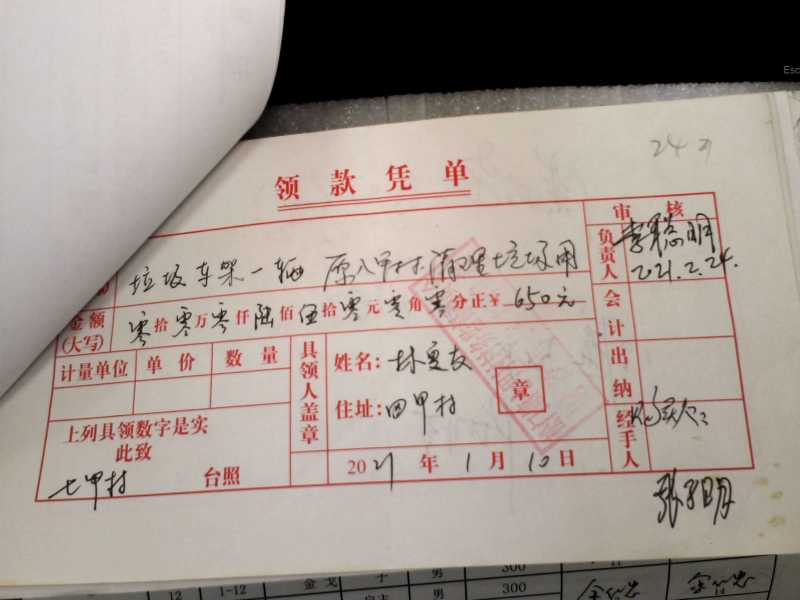 Esc
24.2
领款凭单
垃圾车架一辆 原八甲村清理垃圾用
金额(大写) 零拾零万零仟陆佰伍拾零元零角零分正¥650元
计量单位 单价 数量
上列具领数字是实
此致
七甲村 台照
具领人盖章
姓名:林
住址:四甲村
章
2021年1月10日
审核
负责人 李聪明
2021.2.24.
会计
出纳
经手人
张明
12 1-12 金戈 子 男 300
男 300